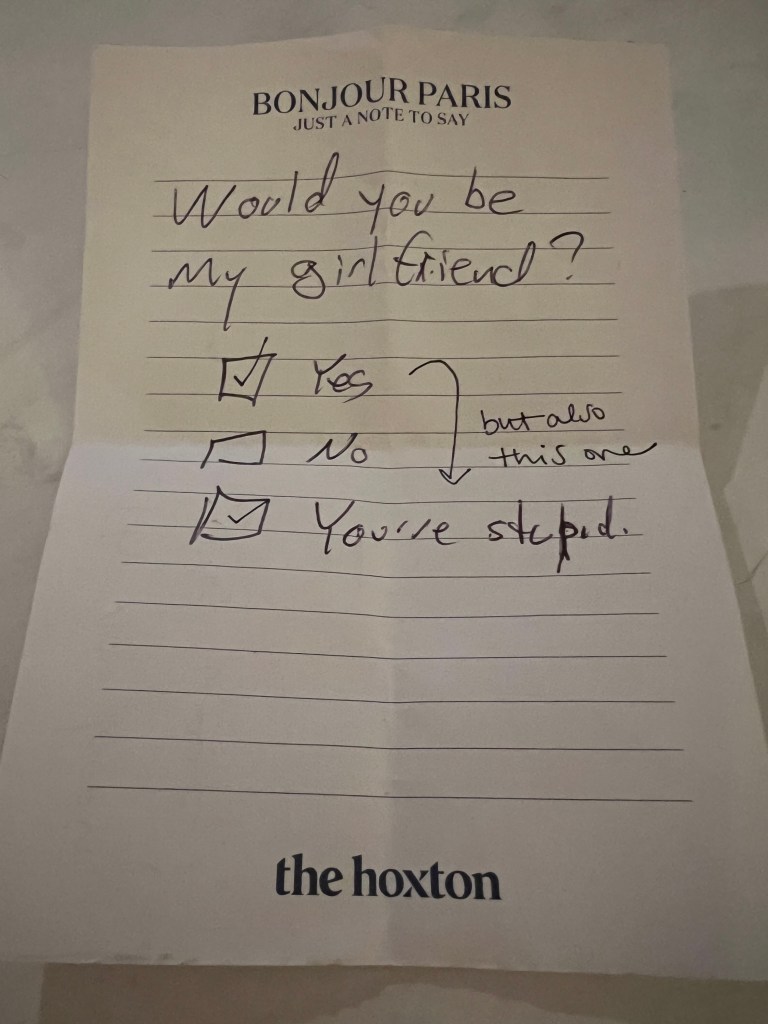 BONJOUR PARIS
JUST A NOTE TO SAY
Would you be
My girlfriend?
Yes
but also
this one
No
You're stupid.
the hoxton